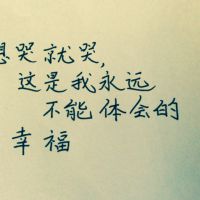 想哭就哭,
这是我永远
不能体会的
幸福